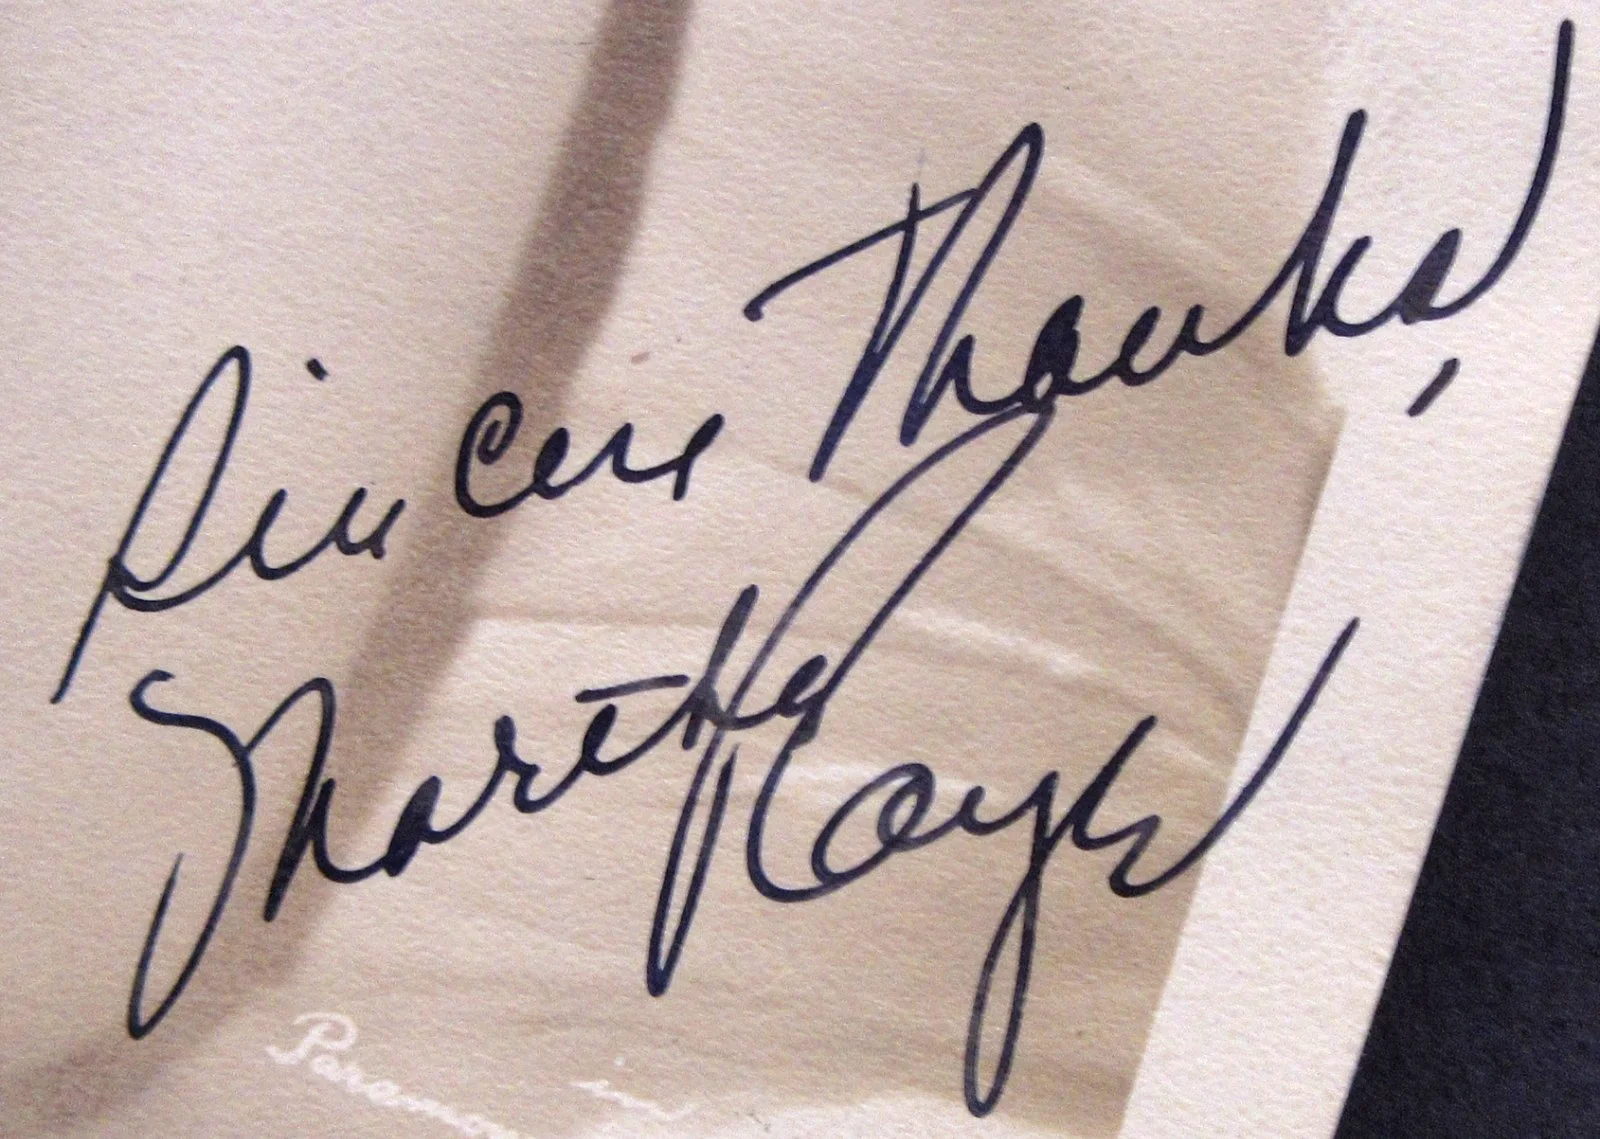 Sincere Thanks!
Martha Raye
Paramo
in